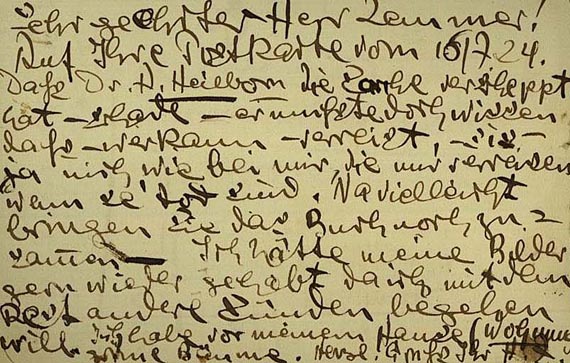 Sehr geehrter Herr Zemmer!
Auf Ihre Postkarte vom 16/7 24.
Dass Dr. A. Heilborn die Sache verschleppt
hat – schade – er müsste doch wissen
dass – wer kann – verreist, –
ja nich wie bei mir, die nur verreisen
wenn se tot sind. Na vielleicht
bringen Sie das Buch noch zu-
sammen – Ich hätte meine Bilder
gern wieder gehabt da ich mit dem
Rest andere Sünden begehen
will. Ich habe vor meinem Hause (Wohnung
Bäume. Herzl. Gruss